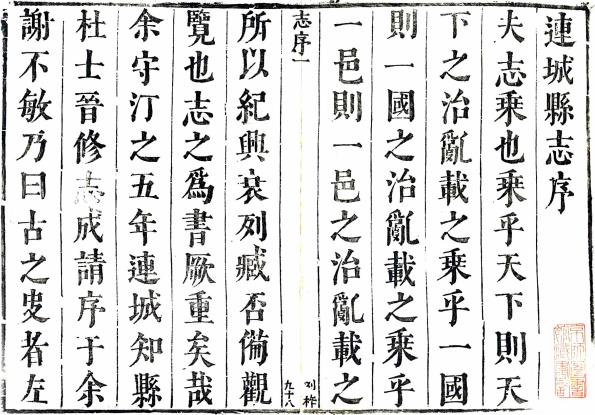 連城縣志序
夫志乘也乘乎天下則天
下之治亂載之乘乎一國
則一國之治亂載之乘乎
一邑則一邑之治亂載之
志序一
九十八
所以紀興衰列臧否俻觀
覽也志之爲書厥重矣哉
余守汀之五年連城知縣
杜士晉修志成請序于余
謝不敏乃曰古之史者左